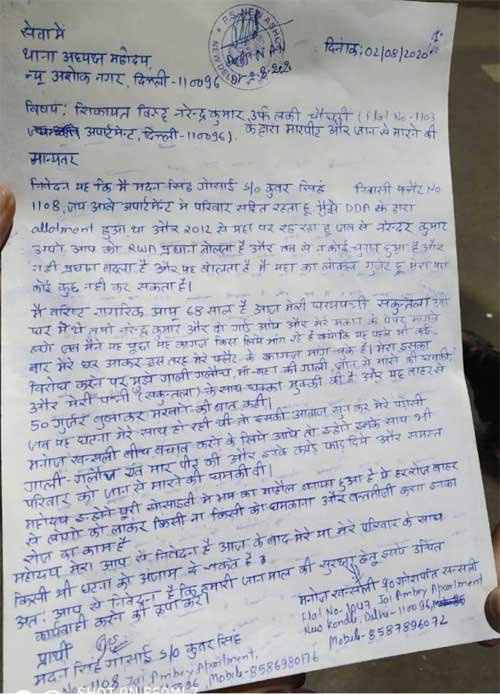 सेवा में
थाना अध्यक्ष महोदय,
न्यू अशोक नगर, दिल्ली-110096
दिनांक: 02/08/2020
विषय: शिकायत विरुद्ध नरेन्द्र कुमार उर्फ लकी चौधरी (Flat No-1103
अपार्टमेन्ट, दिल्ली-110096). के द्वारा मारपीट और जान से मारने की
मान्यवर
निवेदन यह कि मैं मदन सिंह गोसाई S/o कुवर सिंह निवासी फ्लेट No
1108, जय अम्बे अपार्टमेन्ट में परिवार सहित रहता हू मुझे DDA के द्वारा
allotment हुआ था और 2012 से यहा पर रह रहा हू जब से नरेन्दर कुमार
अपने आप को RWA प्रधान बोलता है और तब से न कोई चुनाव हुआ है और
न ही प्रधान बदला है और यह बोलता है मैं यहा का लोकल गुर्जर हू मेरा यहा
कोई कुछ नही कर सकता है।
मैं वरिष्ट नागरिक आयु 68 साल है आज मेरी धरमपत्नी सकुन्तला देवी
घर में थे तभी नरेन्द्र कुमार और दो गार्ड आये और मेरे मकान के पेपर मांगने
लगे जब मैने यह पूछा यह कागज किस लिये मांग रहे है क्योकि यह पहले भी कई
बार मेरे घर आकर इस तरह मेरे फ्लेट के कागजात मांग चुके है। मेरा इसका
विरोध करने पर मुझे गाली गलौच, माँ-बहन की गाली, जान से मारने की धमकी,
और मेरी पत्नी (सकुन्तला) के साथ धक्का मुक्की की है और यह बाहर से
50 गुर्जर बुलाकर मरवाने की बात कही।
जब यह घटना मेरे साथ हो रही थी तो इसकी आवाज सुन कर मेरे पड़ोसी
मनोज खन्सली बीच बचाव करने के लिये आये तो इन्होने इनके साथ भी
गाली-गलौज एवं मार पीट की और इनके कपड़े फाड़ दिये और समस्त
परिवार को जान से मारने की धमकी दी।
महोदय इन्होने पूरी सोसाइटी में भय का माहौल बनाया हुआ है ये हर रोज बाहर
से लोगो को लाकर किसी ना किसी को धमकाना और बत्तमीजी करना इनका
रोज का काम है
महोदय मेरा आप से निवेदन है आज के बाद मेरे या मेरे परिवार के साथ
किसी भी घटना को अंजाम दे सकते है।
अतः आप से निवेदन है कि हमारी जान माल की सुरक्षा हेतु इनपे उचित
कार्यवाही करने की कृपा करें।
प्रार्थी
मदन सिंह गोसाई S/o कुवर सिंह
No-1108 Jai Ambey Apartment,
110096, Mobile-8586980176
मनोज खन्सली S/o गोरापति खन्सली
Flat No-1047 Jai Ambey Apartment
New Kondli, Delhi-110096,
Mobile-8587896072